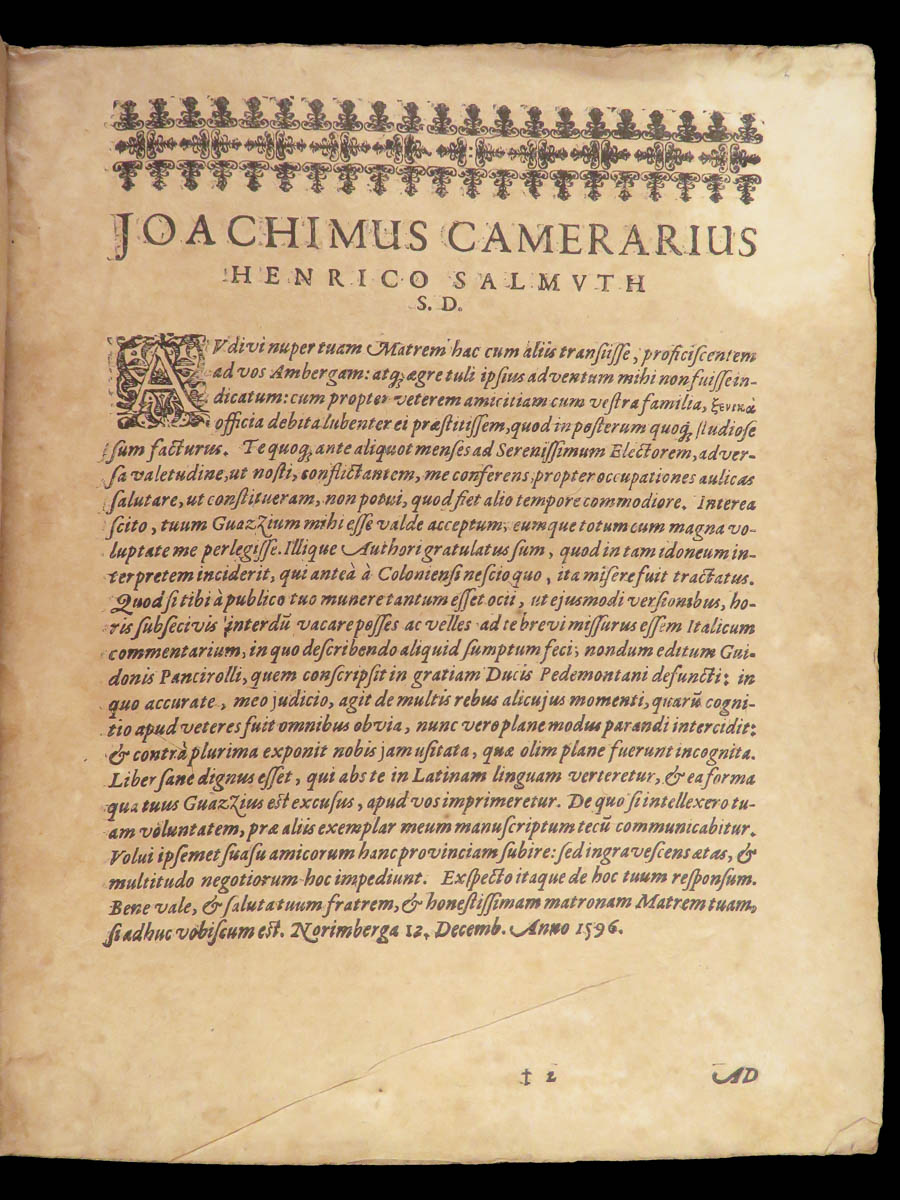 JOACHIMUS CAMERARIUS
HENRICO SALMVTH
S. D.
AVdivi nuper tuam Matrem hac cum aliis transiisse, proficiscentem
ad vos Ambergam: atq; ægre tuli ipsius adventum mihi non fuisse in-
dicatum: cum propter veterem amicitiam cum vestra familia, ξενικὰ
officia debita lubenter ei præstitissem, quod in posterum quoq; studiose
sum facturus. Te quoq; ante aliquot menses ad Serenissimum Electorem, adver-
sa valetudine, ut nosti, conflictantem, me conferens, propter occupationes aulicas
salutare, ut constitueram, non potui, quod fiet alio tempore commodiore. Interea
scito, tuum Guazzium mihi esse valde acceptum, eumque totum cum magna vo-
luptate me perlegisse. Illique Authori gratulatus sum, quod in tam idoneum in-
terpretem inciderit, qui anteà à Coloniensi nescio quo, ita misere fuit tractatus.
Quod si tibi à publico tuo munere tantum esset ocii, ut ejusmodi versionibus, ho-
ris subsecivis interdū vacare posses ac velles ad te brevi missurus essem Italicum
commentarium, in quo describendo aliquid sumptum feci, nondum editum Gui-
donis Pancirolli, quem conscripsit in gratiam Ducis Pedemontani defuncti: in
quo accurate, meo judicio, agit de multis rebus alicujus momenti, quarū cogni-
tio apud veteres fuit omnibus obvia, nunc vero plane modus parandi intercidit:
& contrà plurima exponit nobis jam usitata, quæ olim plane fuerunt incognita.
Liber sane dignus esset, qui abs te in Latinam linguam verteretur, & ea forma
qua tuus Guazzius est excusus, apud vos imprimeretur. De quo si intellexero tu-
am voluntatem, præ aliis exemplar meum manuscriptum tecū communicabitur.
Volui ipsemet suasu amicorum hanc provinciam subire: sed ingravescens ætas, &
multitudo negotiorum hoc impediunt. Exspecto itaque de hoc tuum responsum.
Bene vale, & saluta tuum fratrem, & honestissimam matronam Matrem tuam,
si adhuc vobiscum est. Norimberga 12. Decemb. Anno 1596.
† 2 AD